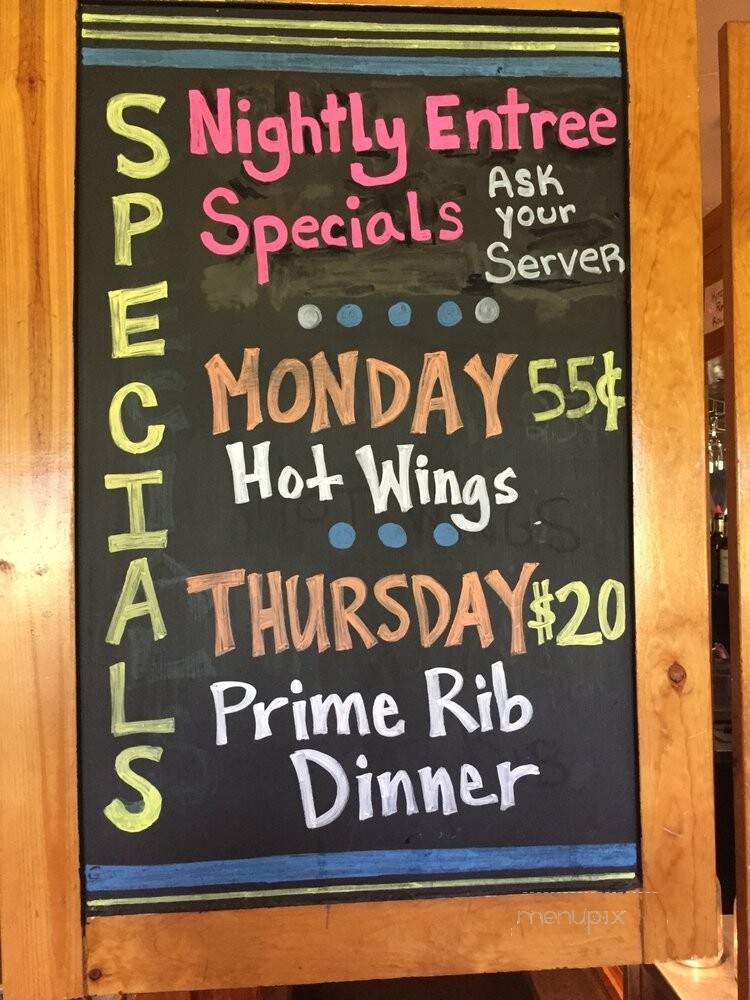 SPECIALS
Nightly Entree
Specials
Ask
your
Server
MONDAY 55¢
Hot Wings
THURSDAY $20
Prime Rib
Dinner
menupix